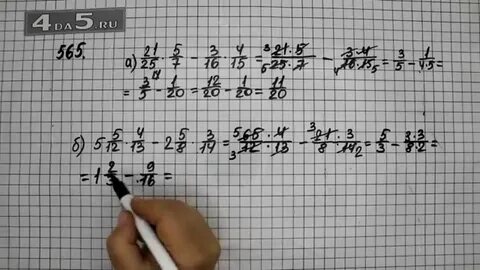 4DA5.RU
565.
а) 21/25 · 5/7 - 3/16 · 4/15 = 21·5/25·7 - 3·4/16·15 = 3/5 - 1/4·5 =
= 3/5 - 1/20 = 12/20 - 1/20 = 11/20
б) 5 5/12 · 4/13 - 2 5/8 · 3/14 = 65·4/12·13 - 21·3/8·14 = 5/3 - 3·3/8·2 =
= 1 2/3 - 9/16 =